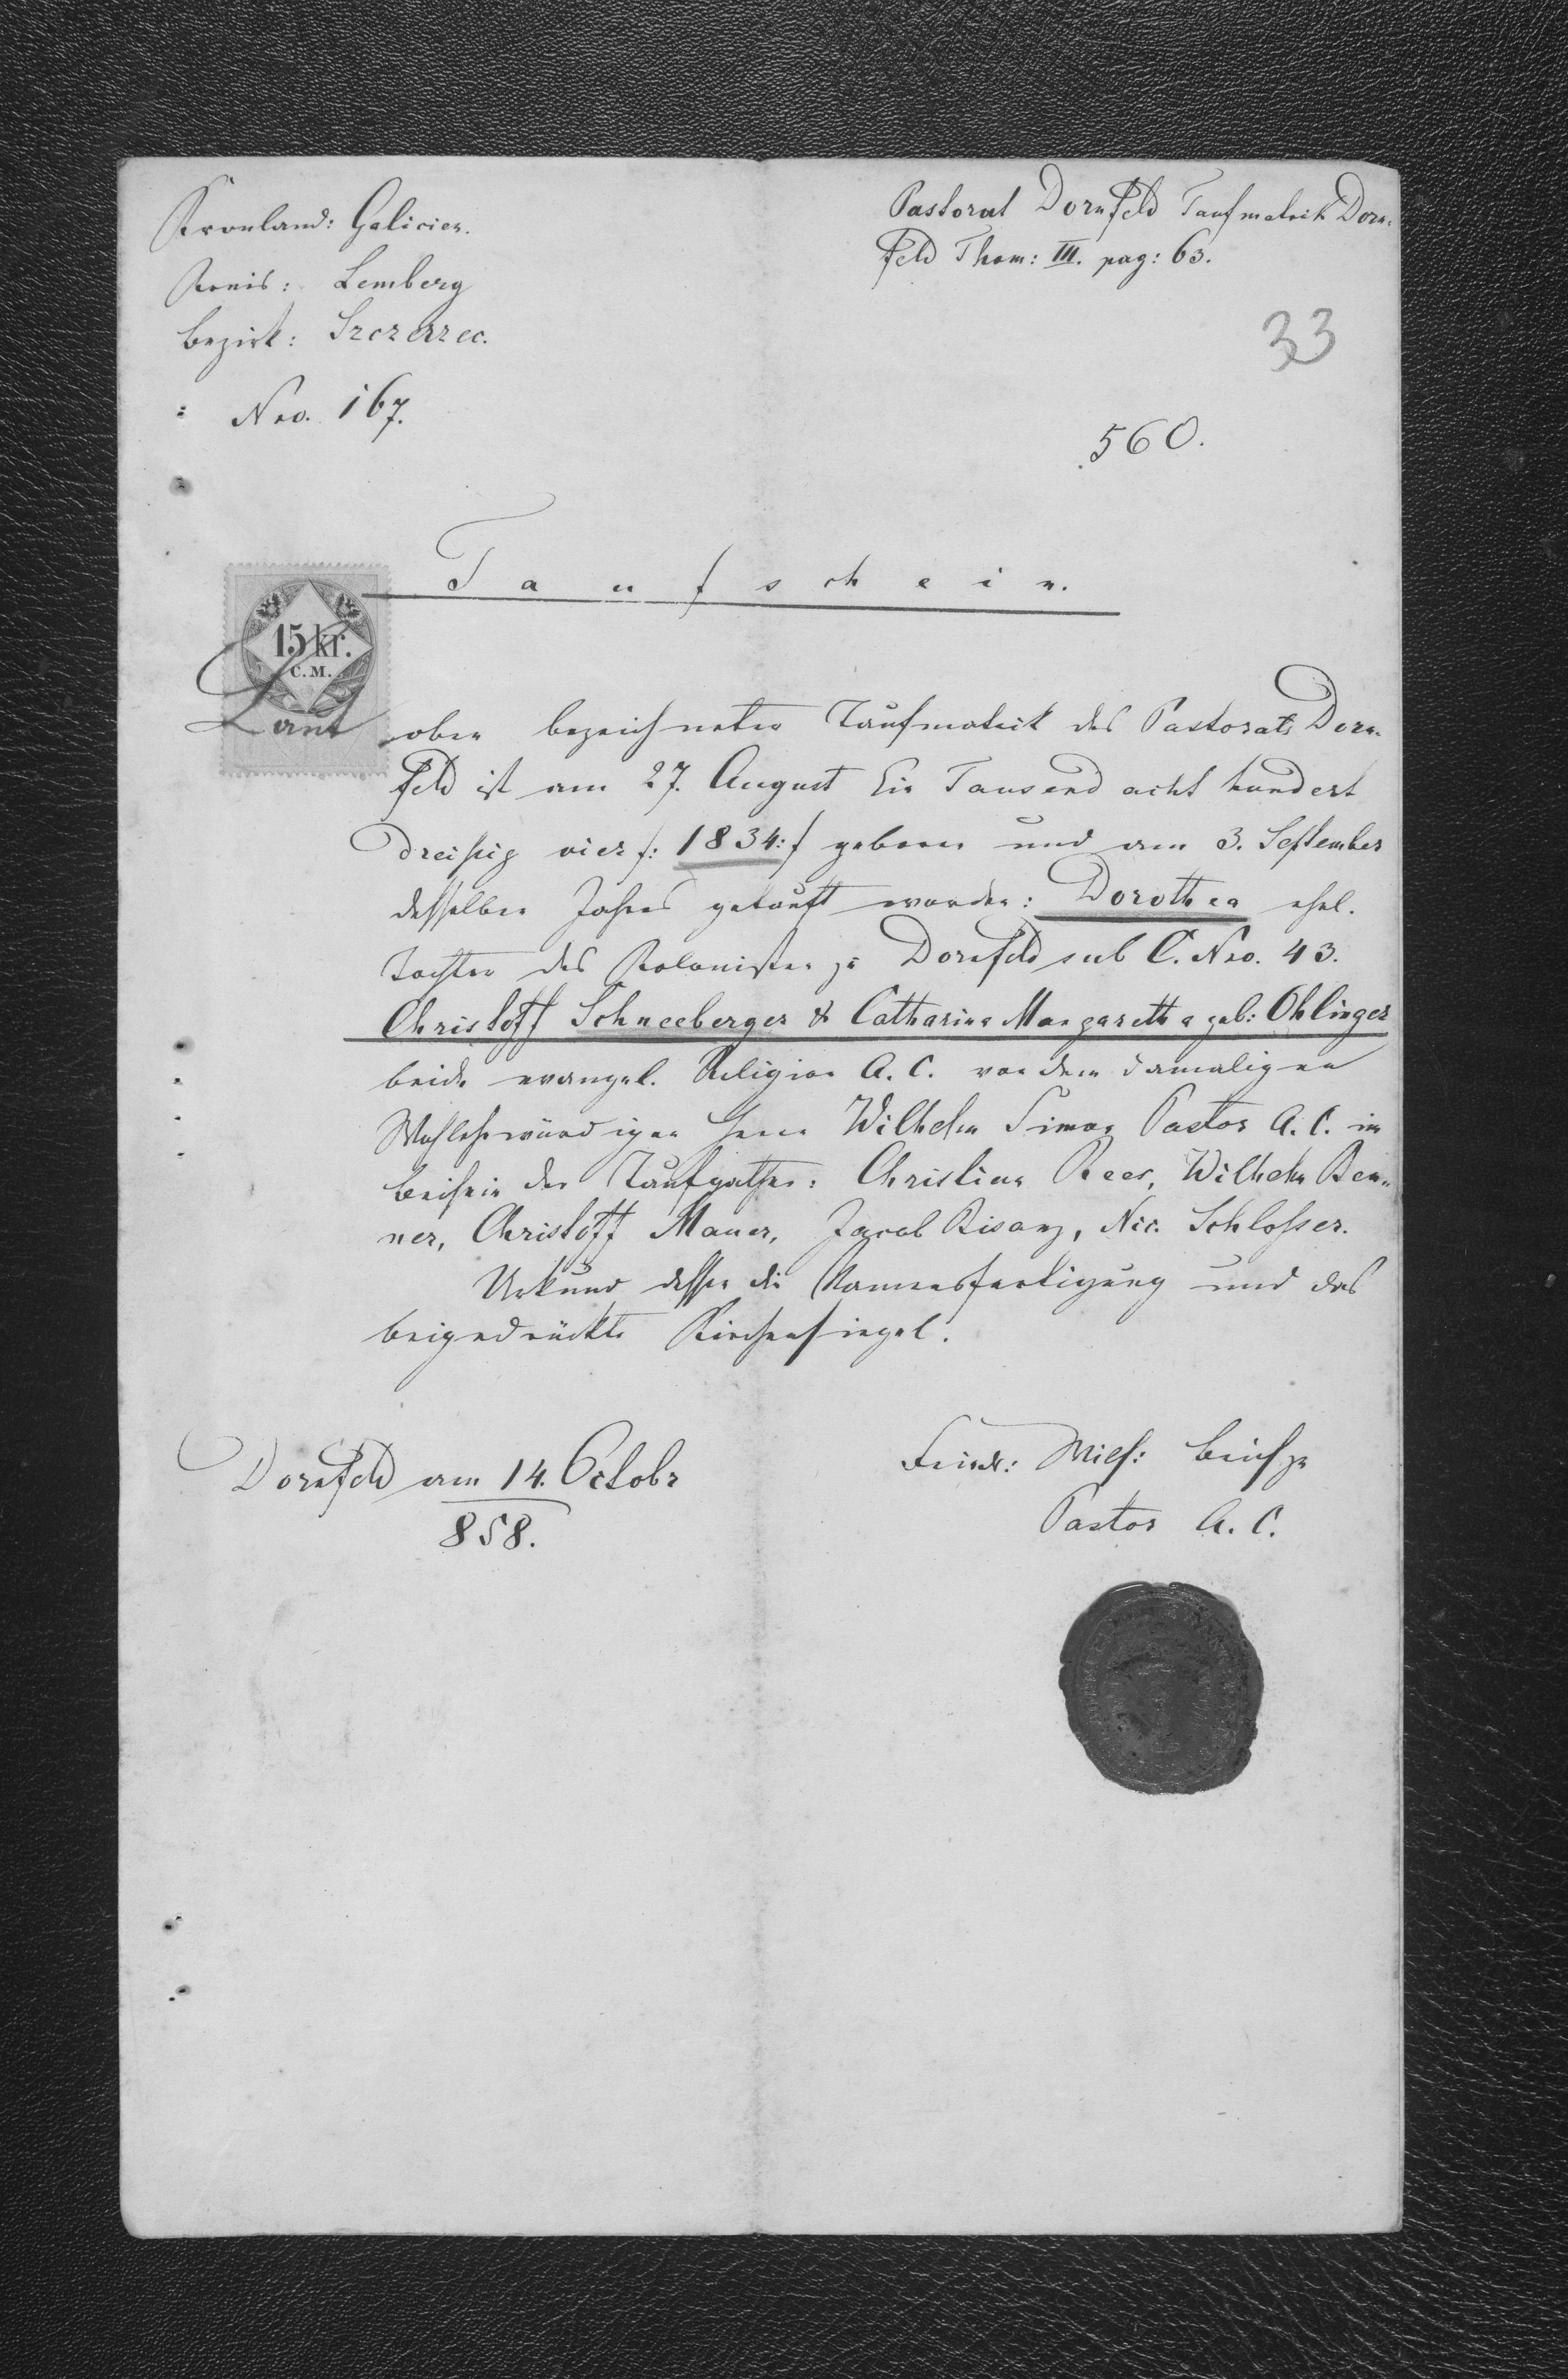 Kronland: Galicien.
Kreis: Lemberg
Bezirk: Szczerzec.
Nro. 167.
Pastorat Dornfeld Taufmatrik Dorn-
feld Thom: III. pag: 63.
33
560.
Taufschein.
15 kr.
C.M.
Laut oben bezeichneter Taufmatrik des Pastorats Dorn-
feld ist am 27. August Ein Tausend acht hundert
dreißig vier /: 1834 :/ geboren und am 3. September
desselben Jahres getauft worden: Dorothea ehel.
Tochter des Kolonisten zu Dornfeld sub C. Nro. 43.
Christoff Schneeberger & Catharina Margaretha geb: Ohlinger
beide evangel. Religion A. C. von dem damaligen
Wohlehrwürdigen Herrn Wilhelm Simon Pastor A. C. im
Beisein der Taufpathen: Christina Rees, Wilhelm Ben-
ner, Christoff Mauer, Jacob Bisanz, Nic. Schloßer.
Urkund dessen die Namensfertigung und das
beigedrückte Kirchensiegel.
Dornfeld am 14. Octobr
858.
Pastor A. C.